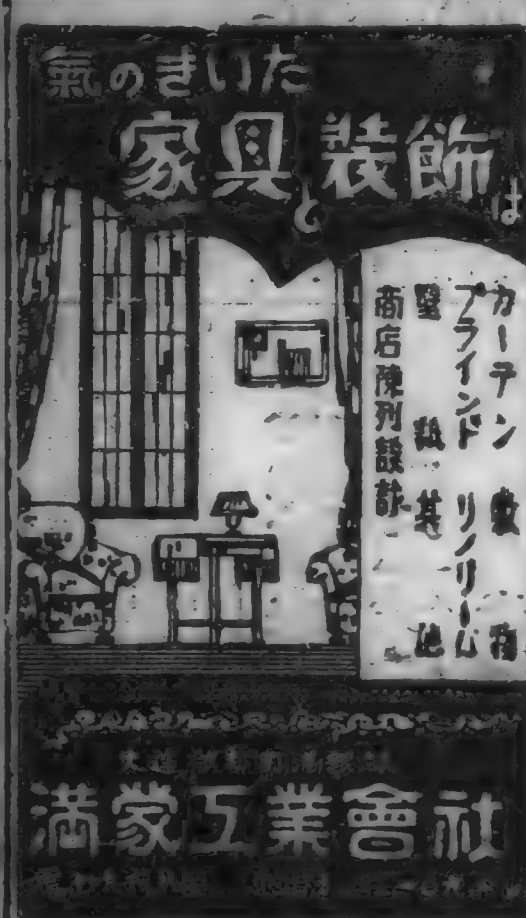 氣のきいた
家具と装飾は
カーテン 敷物
ブラインド リノリーム
壁紙 其他
商店陳列設計
満蒙工業會社